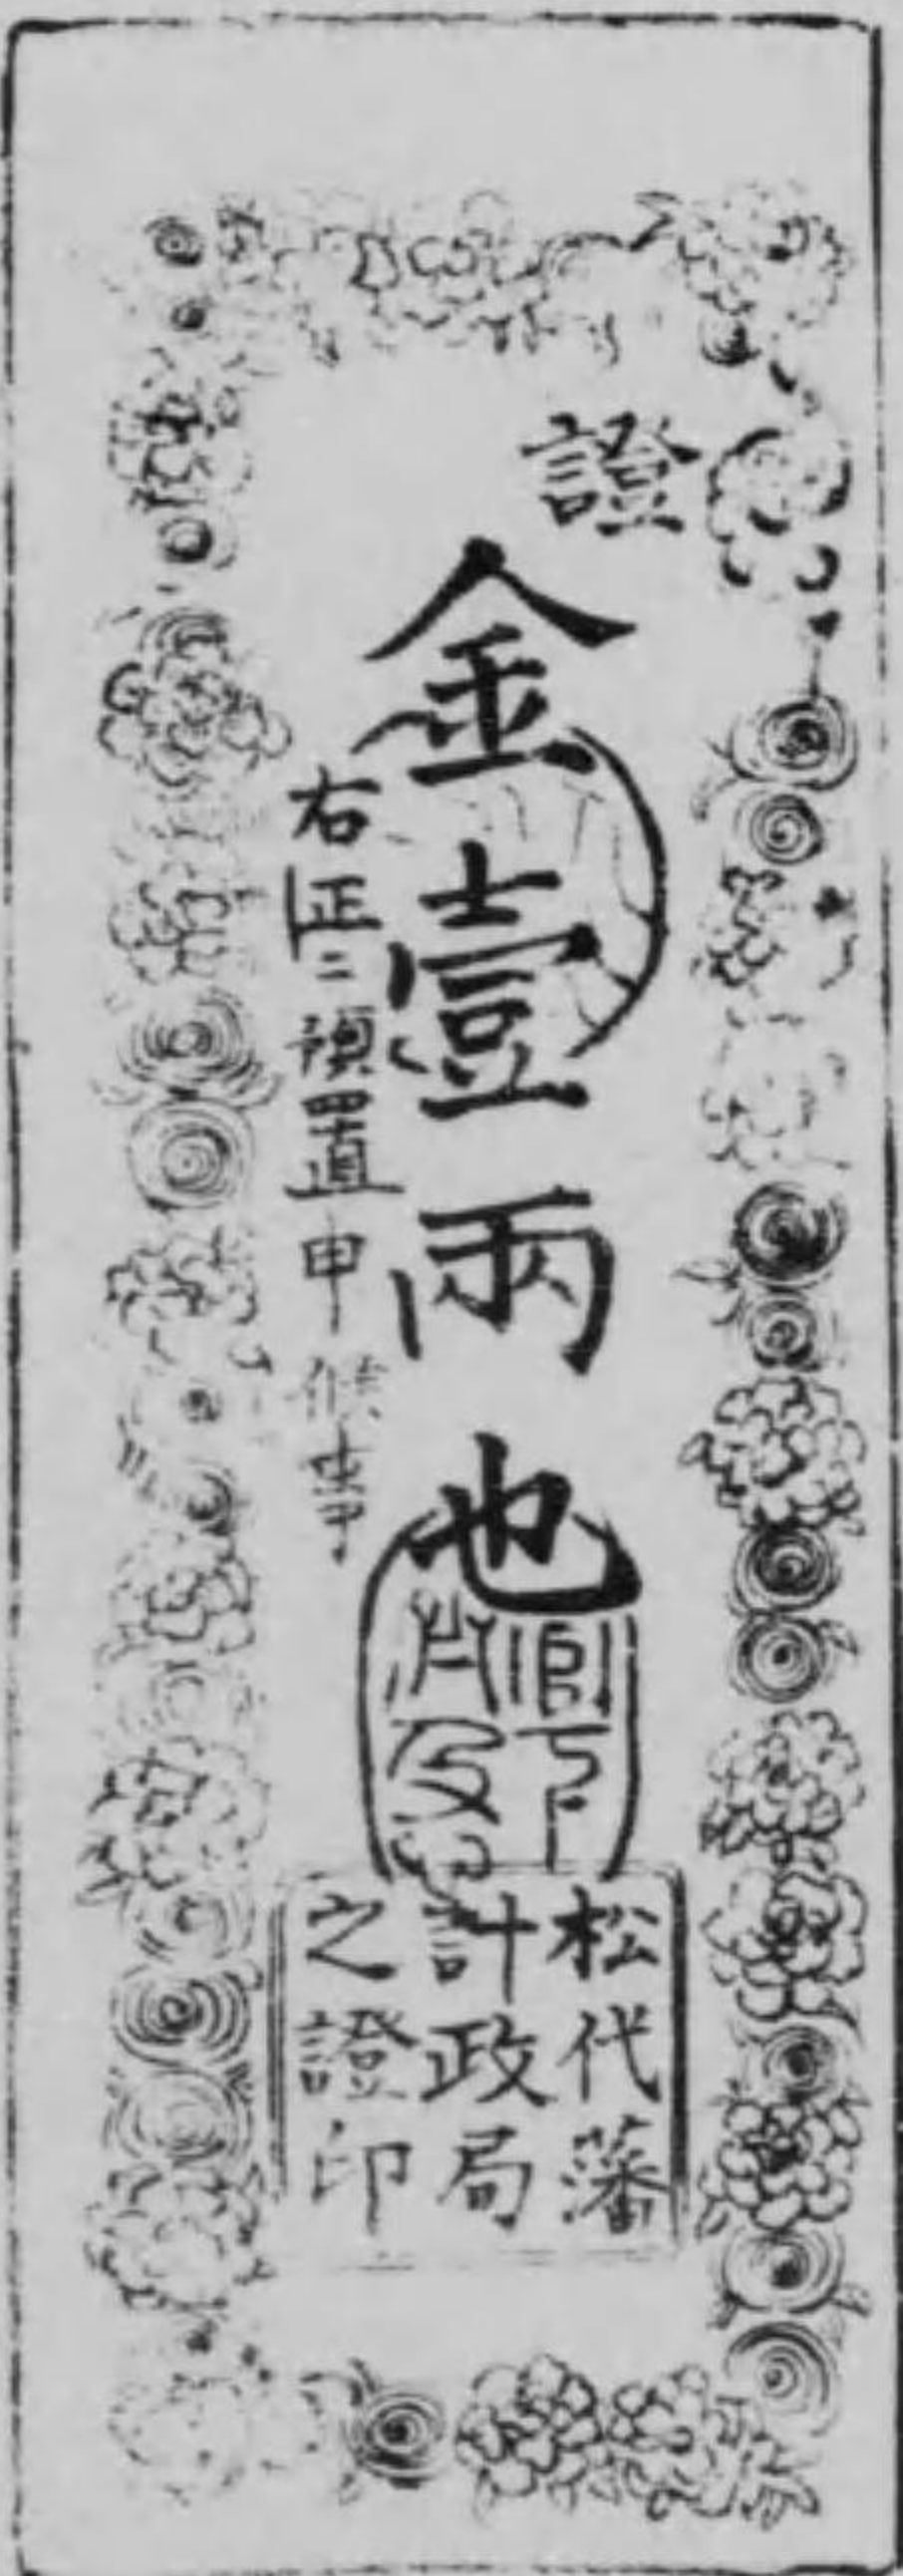 證
金壹兩也
右正ニ預置申候事
松代藩
計政局
之證印